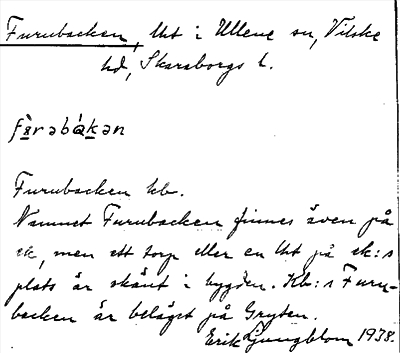 Furubacken, Ust i Ullene sn, Vilske
hd, Skaraborgs l.
fɤ̀rabákan
Furubacken kb.
Namnet Furubacken finnes även på
ek, men ett torp eller en Ust på ek:s
plats är okänt i bygden. Kb:s Furu-
backen är beläget på Gryten.
Erik Ljungblom 1938.